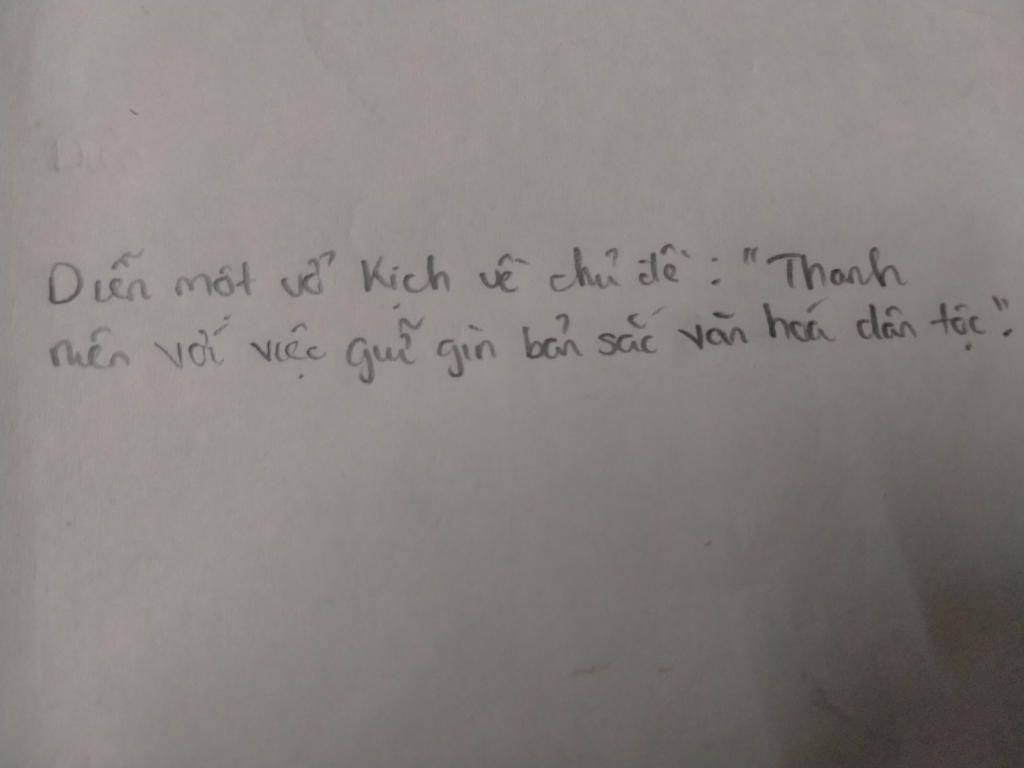 Diễn một vở kịch về chủ đề : "Thanh
niên với việc giữ gìn bản sắc văn hoá dân tộc".